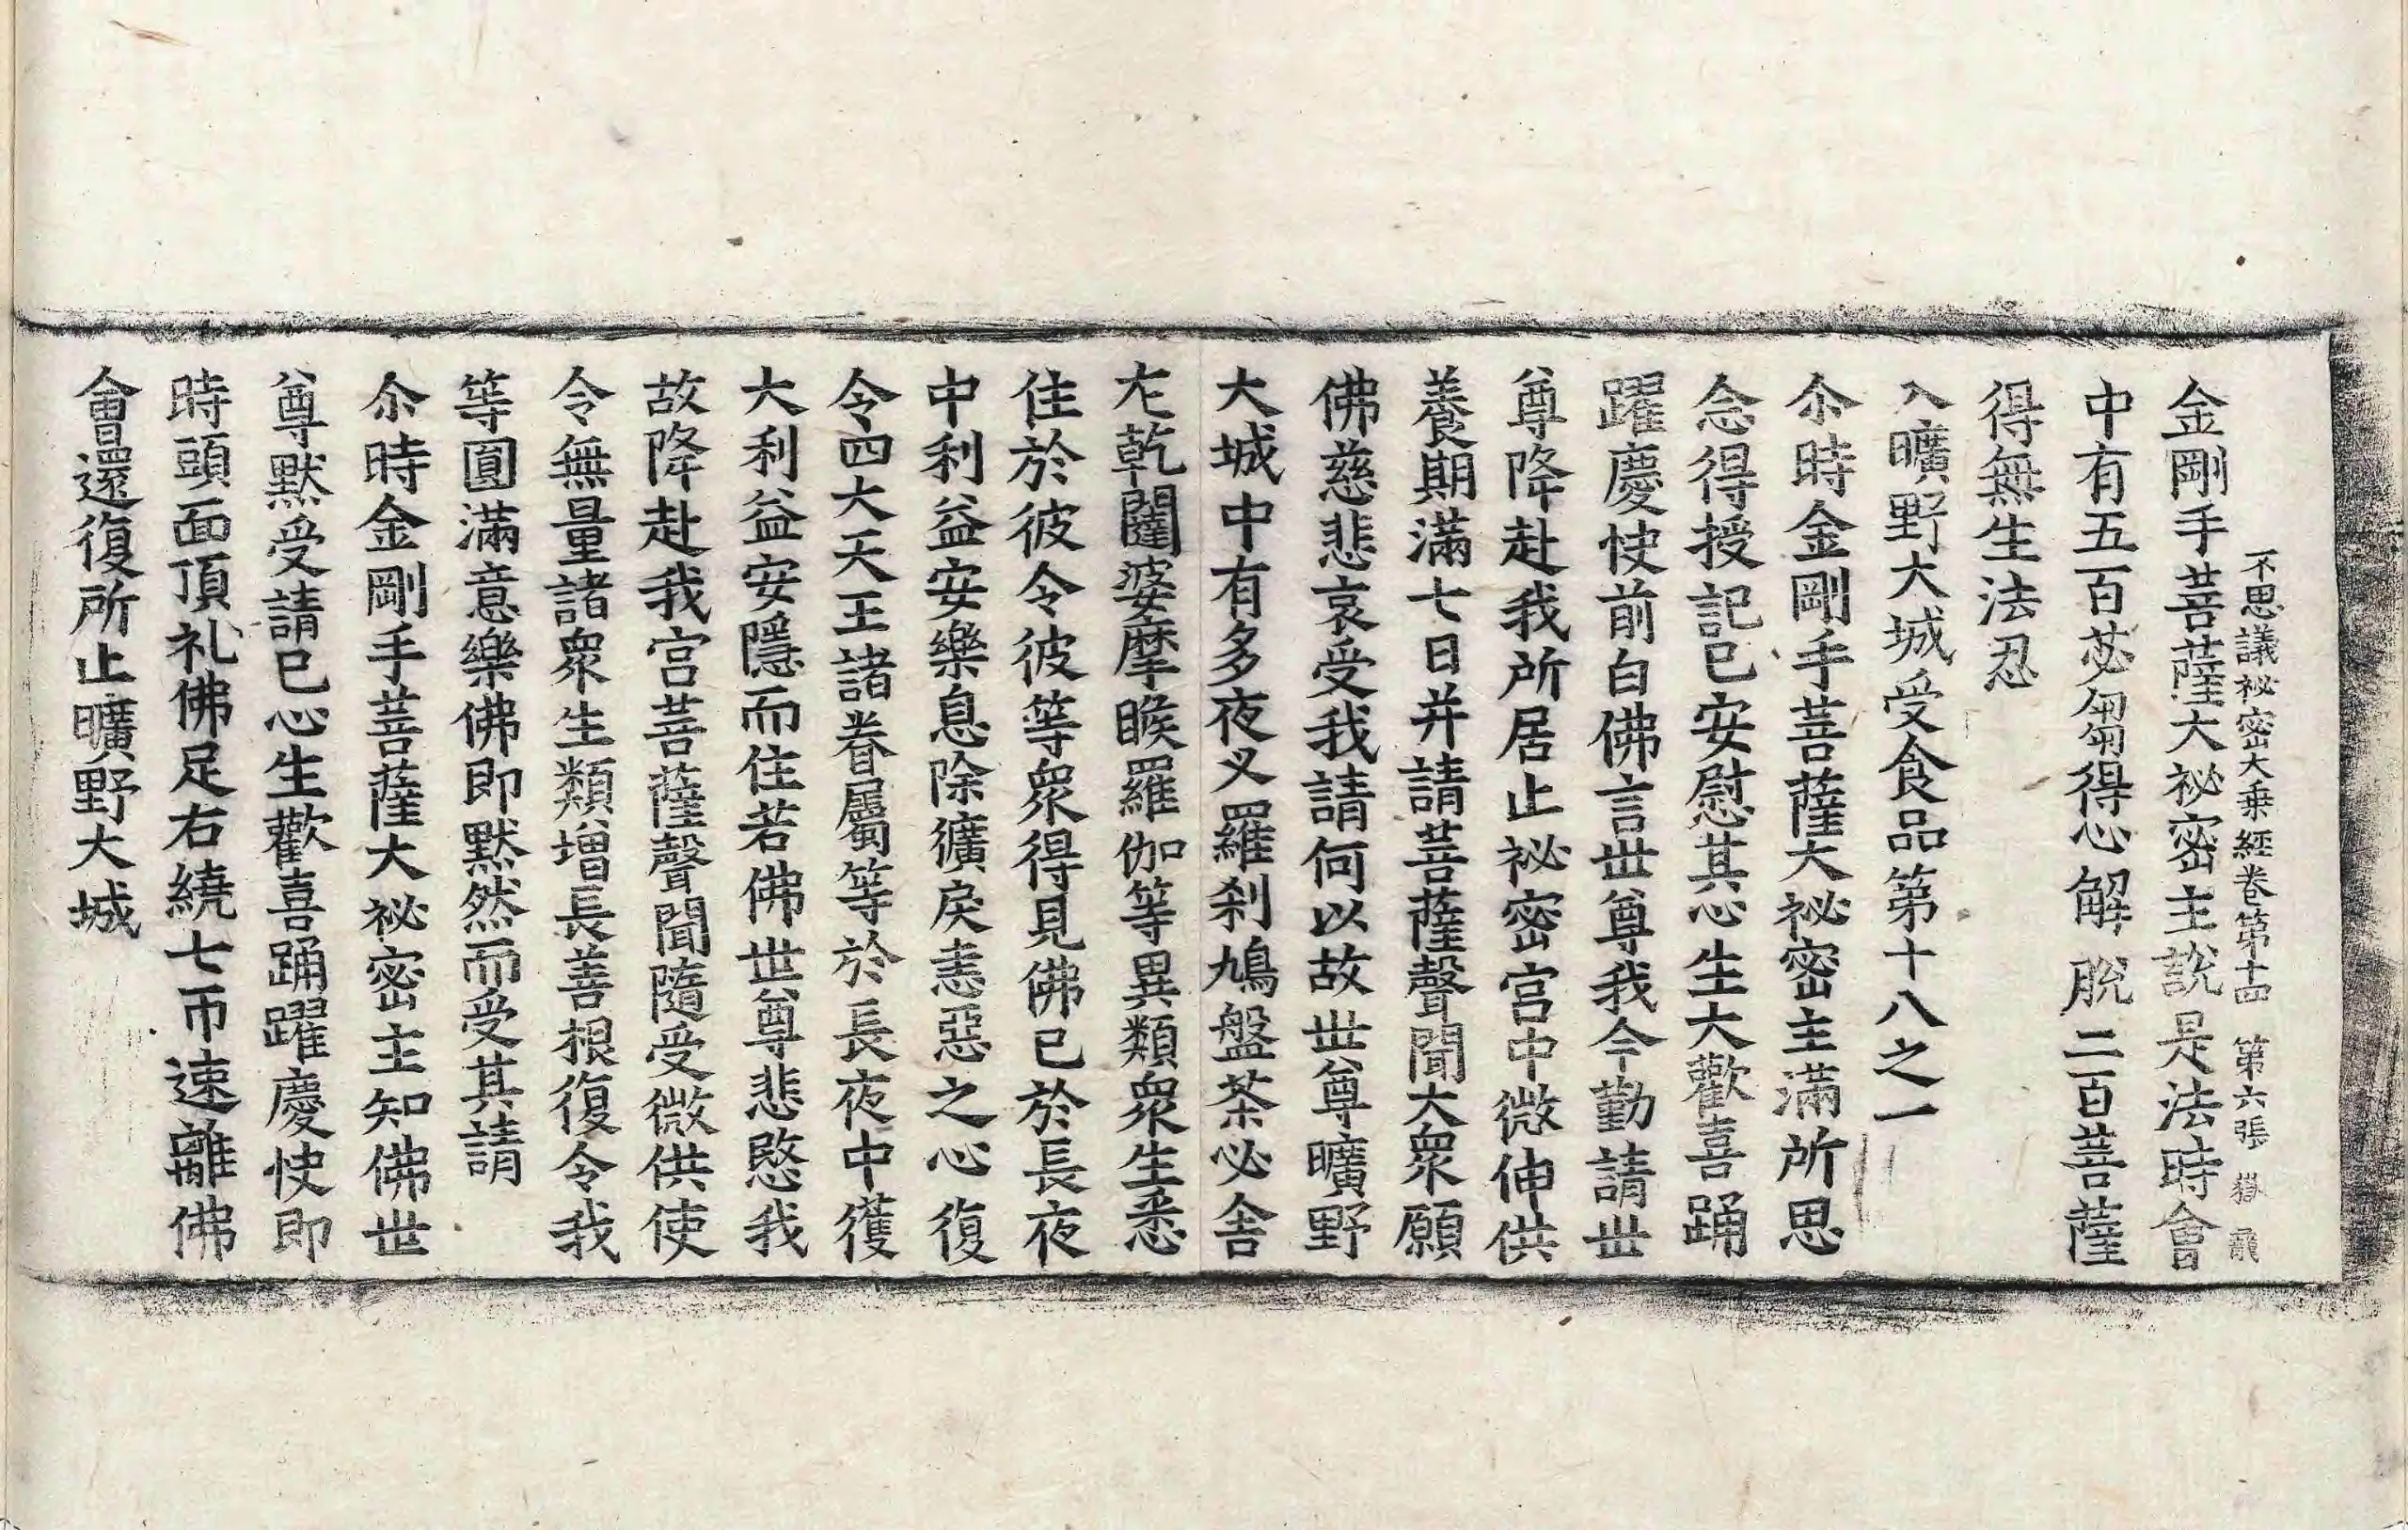 不思議祕密大乗經卷第十四 第六張 嶽
金剛手菩薩大祕密主說是法時會
中有五百苾芻得心解脫二百菩薩
得無生法忍
入曠野大城受食品第十八之一
尒時金剛手菩薩大祕密主滿所思
念得授記已安慰其心生大歡喜踊
躍慶快前白佛言世尊我今勤請世
尊降赴我所居止祕密宫中微伸供
養期滿七日并請菩薩聲聞大衆願
佛慈悲哀受我請何以故世尊曠野
大城中有多夜叉羅刹鳩盤茶必舍
左乾闥婆摩睺羅伽等異類衆生悉
住於彼令彼等衆得見佛已於長夜
中利益安樂息除獷戾恚惡之心復
令四大天王諸眷屬等於長夜中獲
大利益安隱而住若佛世尊悲愍我
故降赴我宫菩薩聲聞隨受微供使
令無量諸衆生類增長善根復令我
等圓滿意樂佛即默然而受其請
尒時金剛手菩薩大祕密主知佛世
尊默受請已心生歡喜踊躍慶快即
時頭面頂礼佛足右繞七帀速離佛
會還復所止曠野大城